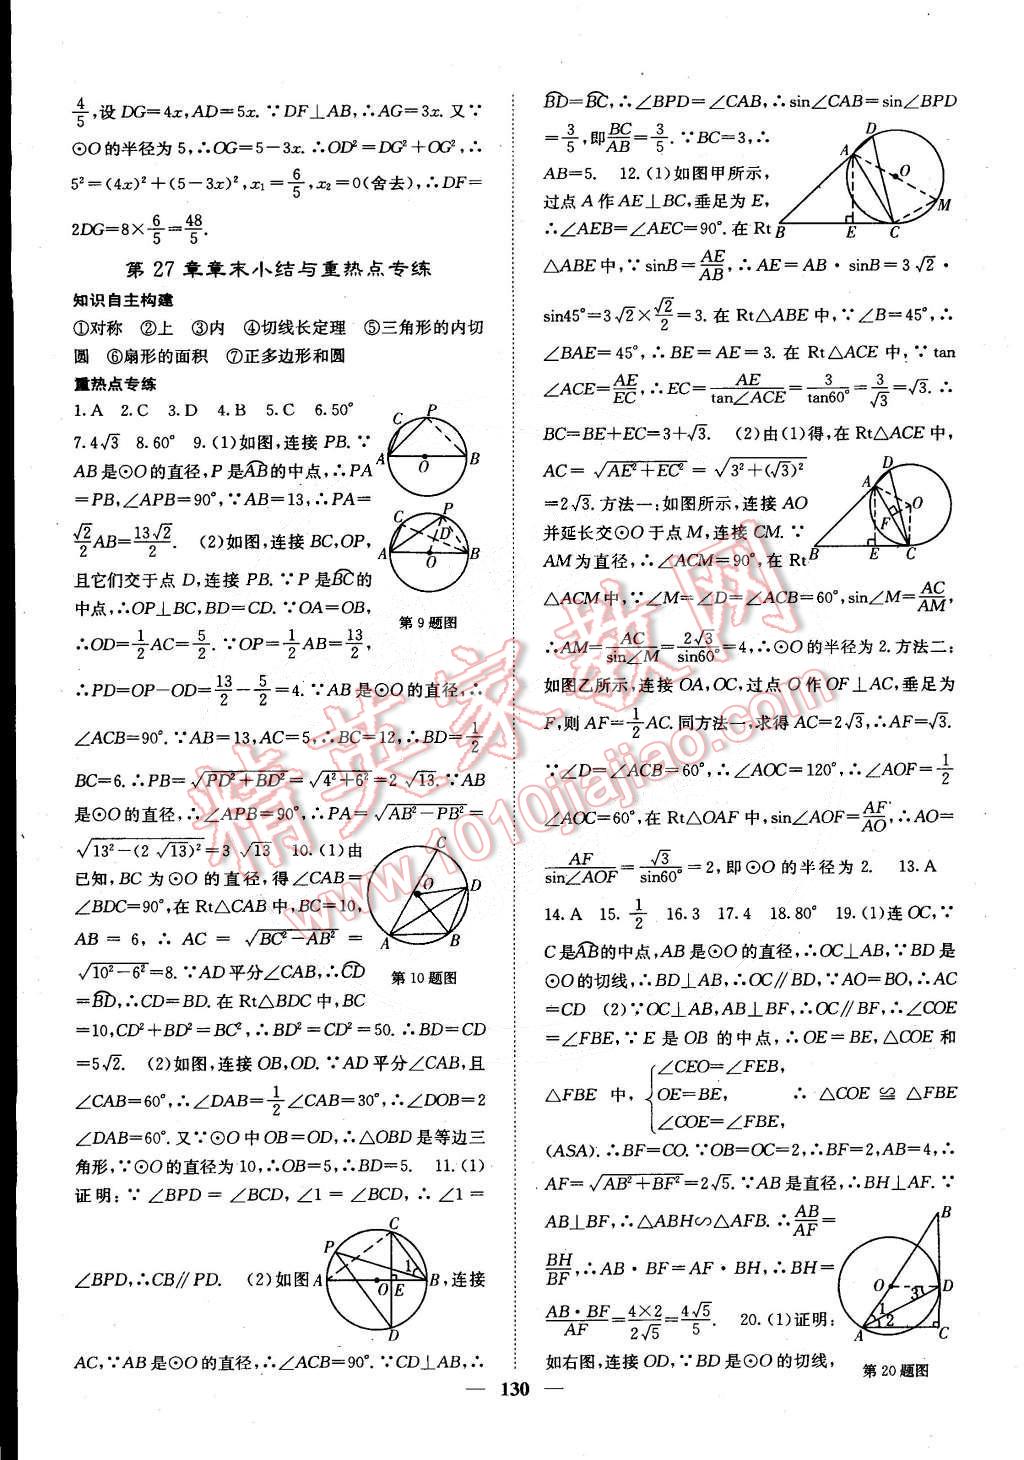 4/5,设 DG=4x,AD=5x.∵DF⊥AB,∴AG=3x.又∵
⊙O的半径为5,∴OG=5-3x.∴OD²=DG²+OG²,∴
5²=(4x)²+(5-3x)²,x₁=6/5,x₂=0(舍去),∴DF=
2DG=8×6/5=48/5.
第 27 章章末小结与重热点专练
知识自主构建
①对称 ②上 ③内 ④切线长定理 ⑤三角形的内切
圆 ⑥扇形的面积 ⑦正多边形和圆
重热点专练
1.A 2.C 3.D 4.B 5.C 6.50°
7.4√3 8.60° 9.(1)如图,连接 PB.∵
AB是⊙O的直径,P是⌒AB的中点,∴PA
=PB,∠APB=90°,∵AB=13,∴PA=
√2/2AB=13√2/2. (2)如图,连接BC,OP,
且它们交于点 D,连接 PB.∵P是⌒BC的
中点,∴OP⊥BC,BD=CD.∵OA=OB,
∴OD=1/2AC=5/2.∵OP=1/2AB=13/2,
第9题图
∴PD=OP-OD=13/2-5/2=4.∵AB是⊙O的直径,∴
∠ACB=90°.∵AB=13,AC=5,∴BC=12,∴BD=1/2
BC=6.∴PB=√PD²+BD²=√4²+6²=2√13.∵AB
是⊙O的直径,∴∠APB=90°,∴PA=√AB²-PB²=
√13²-(2√13)²=3√13 10.(1)由
已知,BC为⊙O的直径,得∠CAB=
∠BDC=90°,在Rt△CAB中,BC=10,
AB=6,∴AC=√BC²-AB²=
√10²-6²=8.∵AD平分∠CAB,∴⌒CD
第10题图
=⌒BD,∴CD=BD.在Rt△BDC中,BC
=10,CD²+BD²=BC²,∴BD²=CD²=50.∴BD=CD
=5√2. (2)如图,连接OB,OD.∵AD平分∠CAB,且
∠CAB=60°,∴∠DAB=1/2∠CAB=30°,∴∠DOB=2
∠DAB=60°.又∵⊙O中OB=OD,∴△OBD是等边三
角形,∵⊙O的直径为10,∴OB=5,∴BD=5. 11.(1)
证明:∵∠BPD=∠BCD,∠1=∠BCD,∴∠1=
∠BPD,∴CB∥PD. (2)如图
,连接
AC,∵AB是⊙O的直径,∴∠ACB=90°.∵CD⊥AB,∴
⌒BD=⌒BC,∴∠BPD=∠CAB,∴sin∠CAB=sin∠BPD
=3/5,即BC/AB=3/5.∵BC=3,∴
AB=5. 12.(1)如图甲所示,
过点A作AE⊥BC,垂足为E,
∴∠AEB=∠AEC=90°.在Rt
△ABE中,∵sinB=AE/AB,∴AE=AB·sinB=3√2·
sin45°=3√2×√2/2=3.在Rt△ABE中,∵∠B=45°,∴
∠BAE=45°,∴BE=AE=3.在Rt△ACE中,∵tan
∠ACE=AE/EC,∴EC=AE/tan∠ACE=3/tan60°=3/√3=√3.∴
BC=BE+EC=3+√3. (2)由(1)得,在Rt△ACE中,
AC=√AE²+EC²=√3²+(√3)²
=2√3.方法一:如图所示,连接AO
并延长交⊙O于点M,连接CM.∵
AM为直径,∴∠ACM=90°,在Rt
△ACM中,∵∠M=∠D=∠ACB=60°,sin∠M=AC/AM,
∴AM=AC/sin∠M=2√3/sin60°=4,∴⊙O的半径为2.方法二:
如图乙所示,连接OA,OC,过点O作OF⊥AC,垂足为
F,则AF=1/2AC.同方法一,求得AC=2√3,∴AF=√3.
∵∠D=∠ACB=60°,∴∠AOC=120°,∴∠AOF=1/2
∠AOC=60°,在Rt△OAF中,sin∠AOF=AF/AO,∴AO=
AF/sin∠AOF=√3/sin60°=2,即⊙O的半径为2. 13.A
14.A 15.1/2 16.3 17.4 18.80° 19.(1)连OC,∵
C是⌒AB的中点,AB是⊙O的直径,∴OC⊥AB,∵BD是
⊙O的切线,∴BD⊥AB,∴OC∥BD,∵AO=BO,∴AC
=CD (2)∵OC⊥AB,AB⊥BF,∴OC∥BF,∴∠COE
=∠FBE,∵E是OB的中点,∴OE=BE,△COE和
△FBE中,{∠CEO=∠FEB, OE=BE, ∠COE=∠FBE, ∴△COE≌△FBE
(ASA).∴BF=CO.∵OB=OC=2,∴BF=2,AB=4,∴
AF=√AB²+BF²=2√5.∵AB是直径,∴BH⊥AF.∵
AB⊥BF,∴△ABH∽△AFB.∴AB/AF=
BH/BF,∴AB·BF=AF·BH,∴BH=
AB·BF/AF=4×2/2√5=4√5/5. 20.(1)证明:
如右图,连接OD,∵BD是⊙O的切线,
第20题图
130
精英家教网
www.1010jiajiao.com